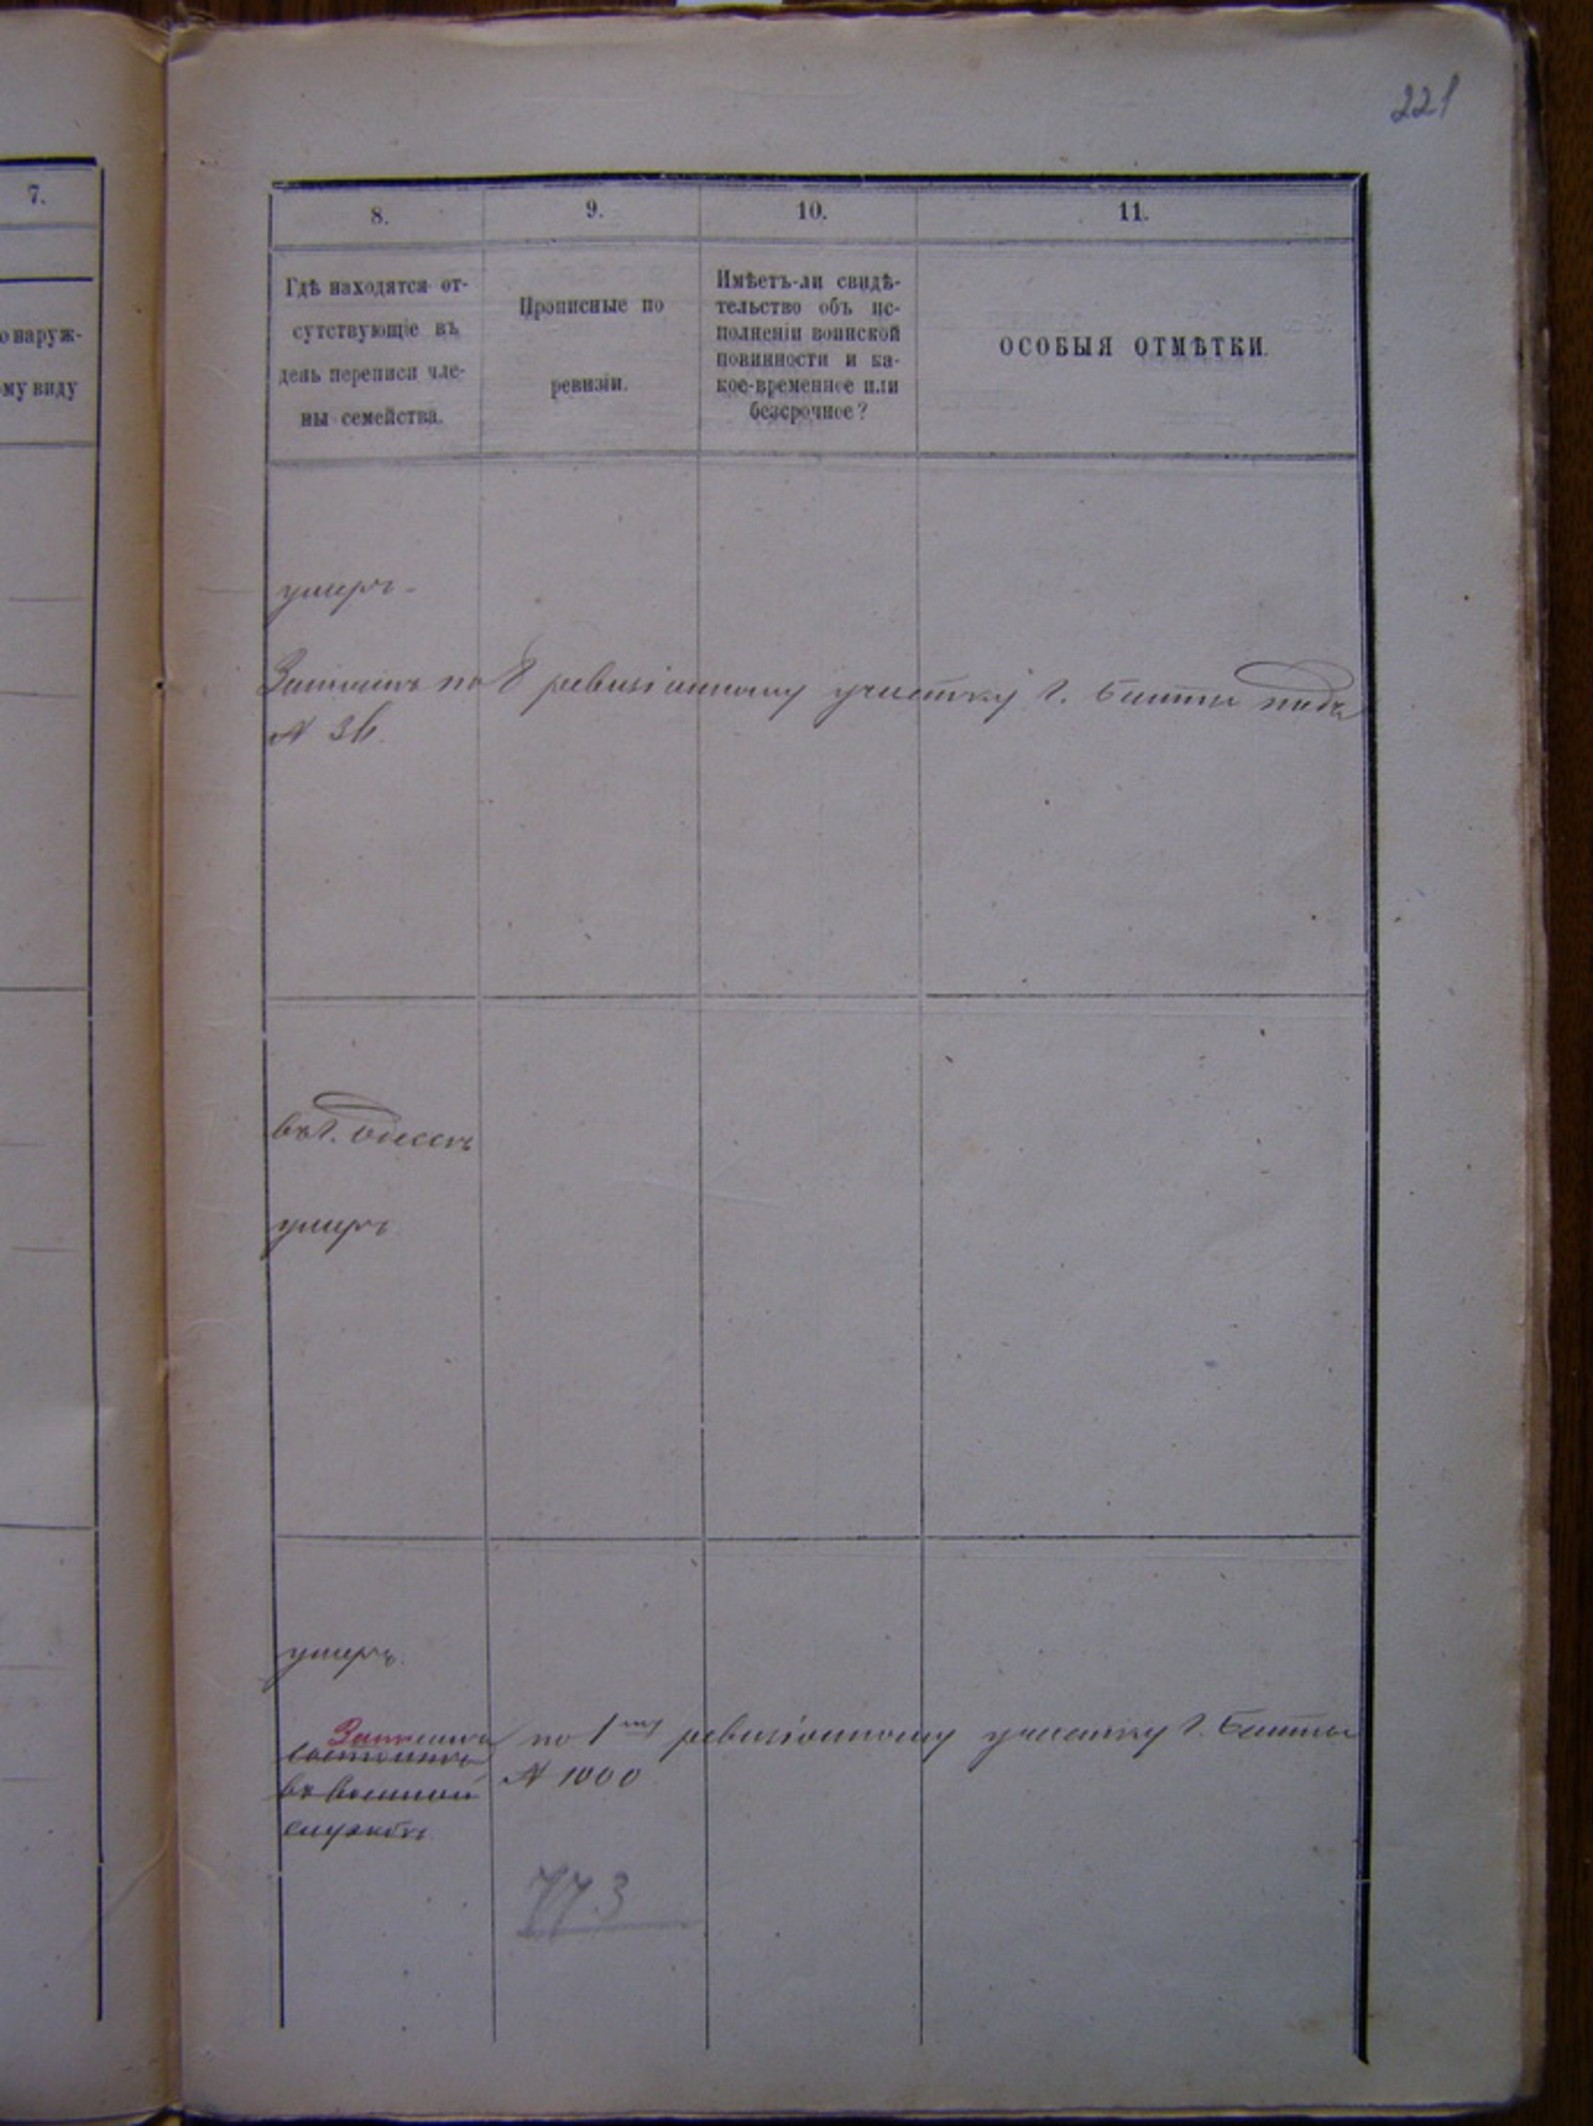 221
7.
о наруж-
ому виду
8.
9.
10.
11.
Гдѣ находятся от-
сутствующіе въ
день переписи чле-
ны семейства.
Прописные по
ревизіи.
Имѣетъ-ли свидѣ-
тельство объ ис-
полненіи воинской
повинности и ка-
кое-временное или
безсрочное?
ОСОБЫЯ ОТМѢТКИ.
умеръ
Записанъ по 8 ревизіонному участку г. Балты подъ
№ 36.
въ г. Одессѣ
умеръ
умеръ.
Записанъ по 1му ревизіонному участку г. Балты
состоитъ
№ 1000
въ военной
службѣ
773